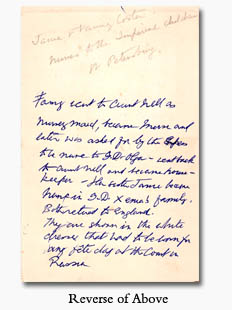 Jane & Fanny Coster
nurses to the Imperial children
in Petersburg.
Fanny went to Aunt Nell as
nursery maid, became Nurse and
later was asked for by the Empress
to be nurse to G.D. Olga - went back
to Aunt Nell and became house-
keeper - Her sister Jane became
Nurse in G.D. Xenia's family.
Both retired to England.
They are shown in the white
dresses that had to be worn for
any fête day at the Court in
Russia
Reverse of Above